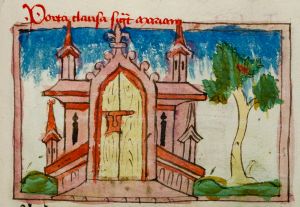 Porta clausa sig̅t mariam